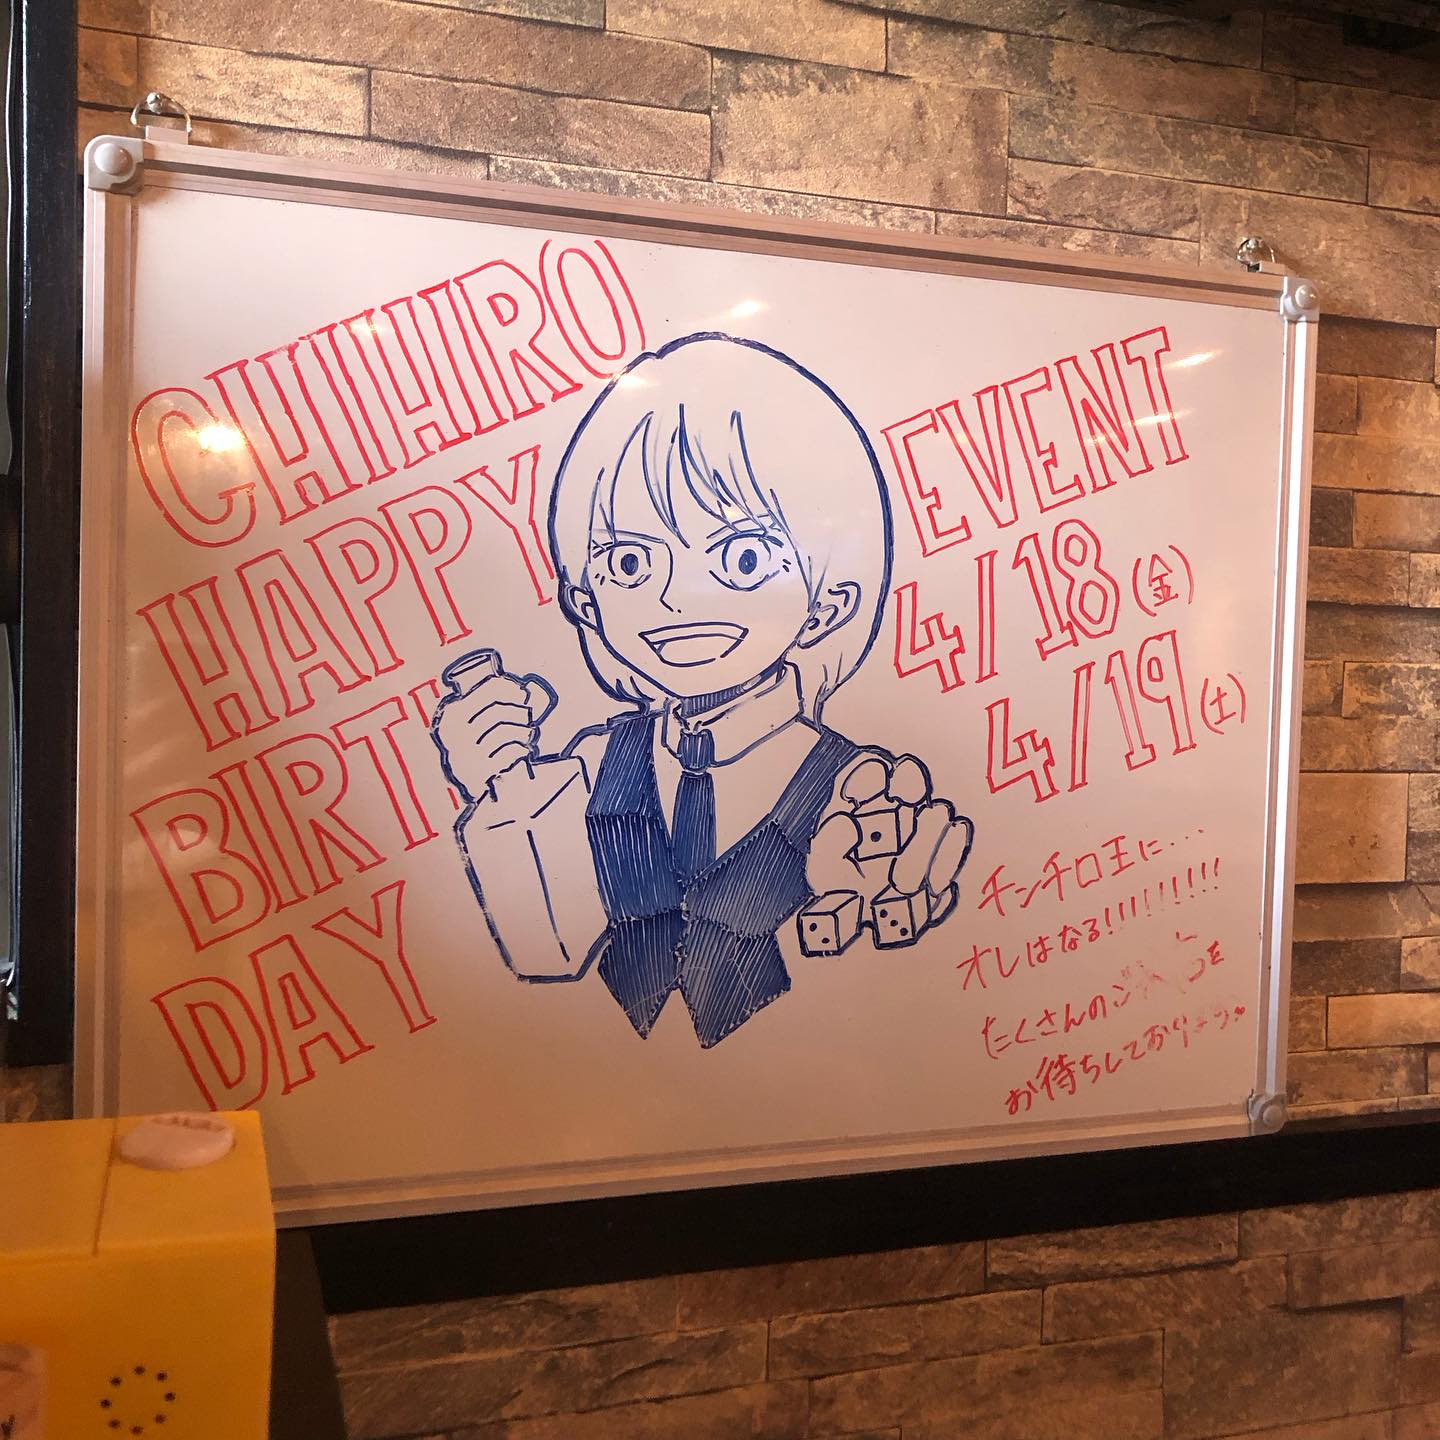 CHIHIRO
HAPPY
BIRTH
DAY
EVENT
4/18(金)
4/19(土)
チンチロ王に...
オレはなる!!!!!!!!!
たくさんの
お待ちしております